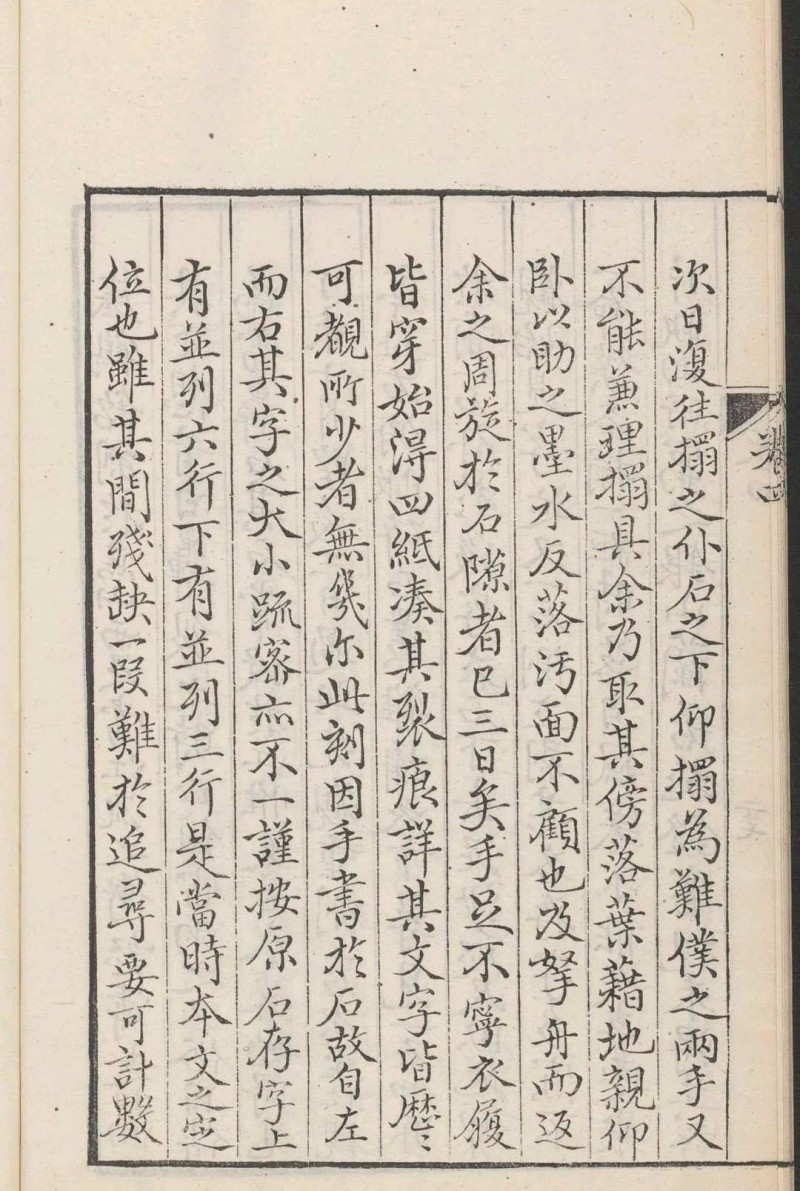 卷四
次日復往搨之仆石之下仰搨為難僕之兩手又
不能兼理搨具余乃取其傍落葉藉地親仰
卧以助之墨水反落汚面不顧也及拏舟而返
余之周旋於石隙者已三日矣手足不寧衣履
皆穿始得四紙湊其裂痕詳其文字皆歷〻
可觀所少者無幾尔此刻因手書於石故自左
而右其字之大小疏密亦不一謹按原石存字上
有並列六行下有並列三行是當時本文之定
位也雖其間殘缺一段難於追尋要可計數